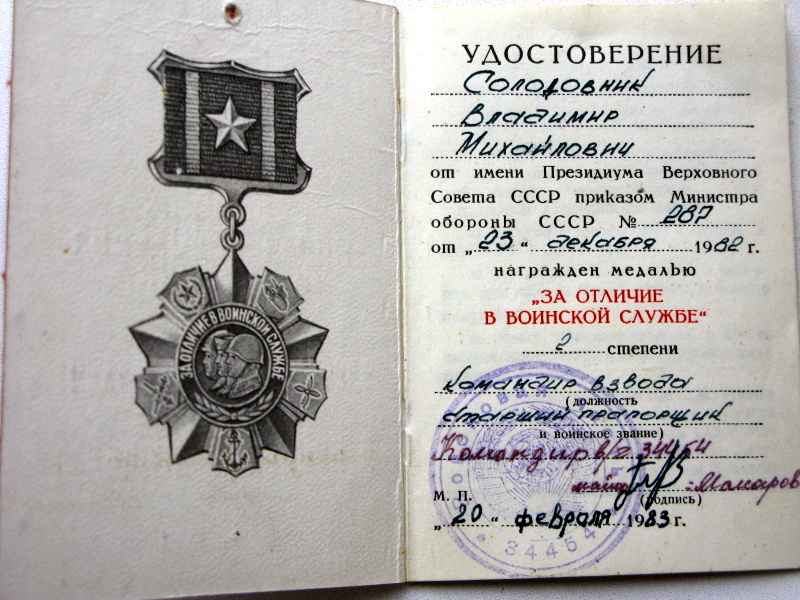 ЗА ОТЛИЧИЕ В ВОИНСКОЙ СЛУЖБЕ
УДОСТОВЕРЕНИЕ
Солодовник
Владимир
Михайлович
от имени Президиума Верховного
Совета СССР приказом Министра
обороны СССР № 287
от „23“ декабря 1982 г.
награжден медалью
„ЗА ОТЛИЧИЕ
В ВОИНСКОЙ СЛУЖБЕ“
2 степени
командир взвода
(должность
старший прапорщик
и воинское звание)
Командир в/ч 34454
майор Макаров
М. П. (подпись)
„20“ февраля 1983 г.
34454